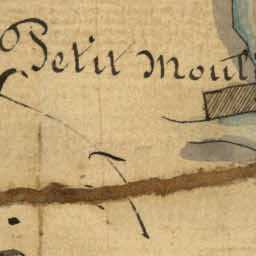 Petit Moul